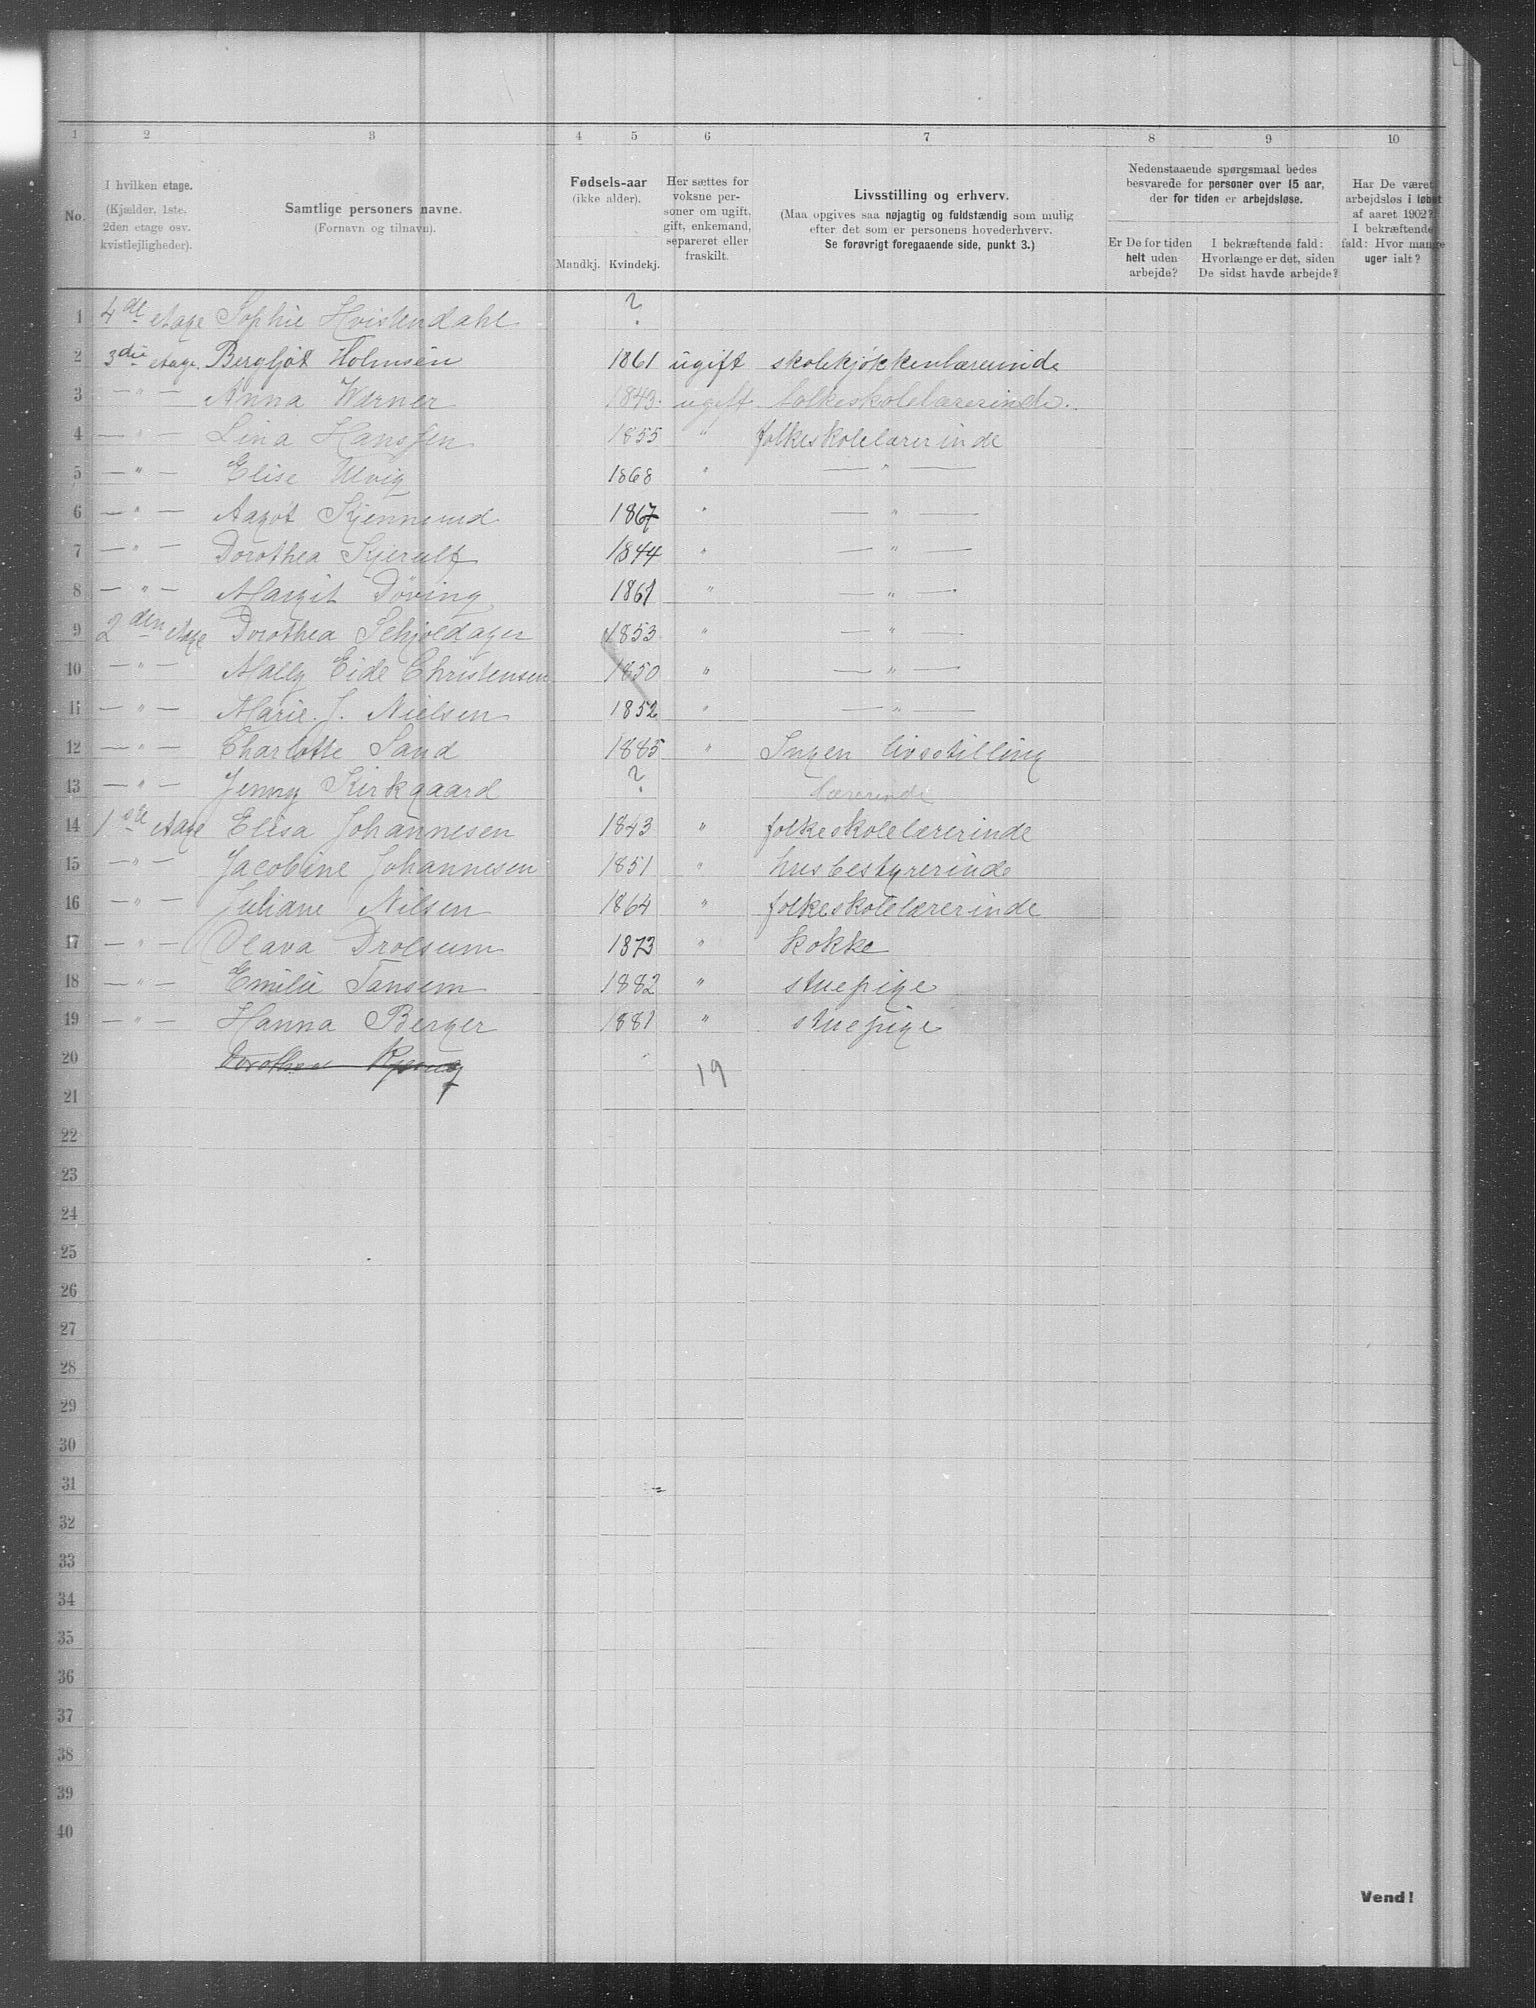 1 2 3 4 5 6 7 8 9 10
No.
I hvilken etage.
(Kjælder, 1ste.
2den etage osv.
kvistlejligheder).
Samtlige personers navne.
(Fornavn og tilnavn).
Fødsels-aar
(ikke alder).
Mandkj. Kvindekj.
Her sættes for
voksne per-
soner om ugift,
gift, enkemand,
separeret eller
fraskilt.
Livsstilling og erhverv.
(Maa opgives saa nøjagtig og fuldstændig som mulig
efter det som er personens hovederhverv.
Se forøvrigt foregaaende side, punkt 3.)
Nedenstaaende spørgsmaal bedes
besvarede for personer over 15 aar,
der for tiden er arbejdsløse.
Er De for tiden
helt uden
arbejde?
I bekræftende fald:
Hvorlænge er det, siden
De sidst havde arbejde?
Har De været
arbejdsløs i løbet
af aaret 1902?
I bekræftende
fald: Hvor mange
uger ialt?
1 4de etage Sophie Hvistendahl ?
2 3die etage. Bergljot Holmsen 1861 ugift skolekjøkkenlærerinde
3 — " — Anna Warner 1843. ugift folkeskolelærerinde.
4 — " — Lina Hanssen 1855 " folkeskolelærerinde
5 — " — Elise Ulvig 1868 " — " —
6 — " — Aagot Skjennerud 1867 " — " —
7 — " — Dorothea Kjerulf 1844 " — " —
8 — " — Margit Døving 1861 " — " —
9 2den etage Dorothea Schjoldager 1853 " — " —
10 — " — Mally Eide Christensen 1850 " — " —
11 — " — Marie J. Nielsen 1852 " — " —
12 — " — Charlotte Sand 1885 " Ingen livsstilling
13 — " — Jenny Kirkgaard ? lærerinde
14 1ste etage Elisa Johannesen 1843 " folkeskolelærerinde
15 — " — Jacobine Johannesen 1851 " husbestyrerinde
16 — " — Juliane Nilsen 1864 " folkeskolelærerinde
17 — " — Olava Drolsum 1873 " kokke
18 — " — Emilie Tansem 1882 " stuepige
19 — " — Hanna Berger 1881 " stuepige
20 Dorothea
19
21
22
23
24
25
26
27
28
29
30
31
32
33
34
35
36
37
38
39
40
Vend!